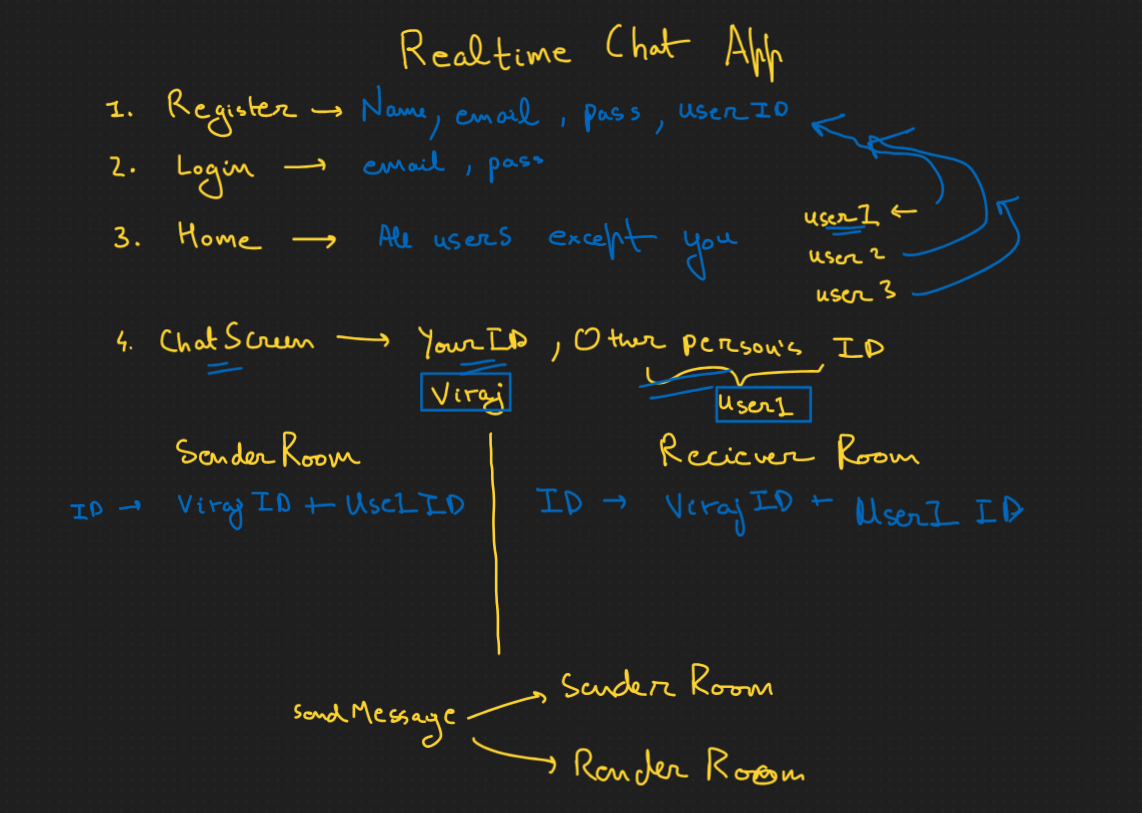 Realtime Chat App
1. Register → Name, email, pass, userID
2. Login → email, pass
3. Home → All users except you
user1 ←
user 2
user 3
4. ChatScreen → YourID, Other person's ID
Viraj
user1
SenderRoom
Reciever Room
ID → Viraj ID + Use1 ID
ID → Viraj ID + User1 ID
SendMessage
Sender Room
Render Room